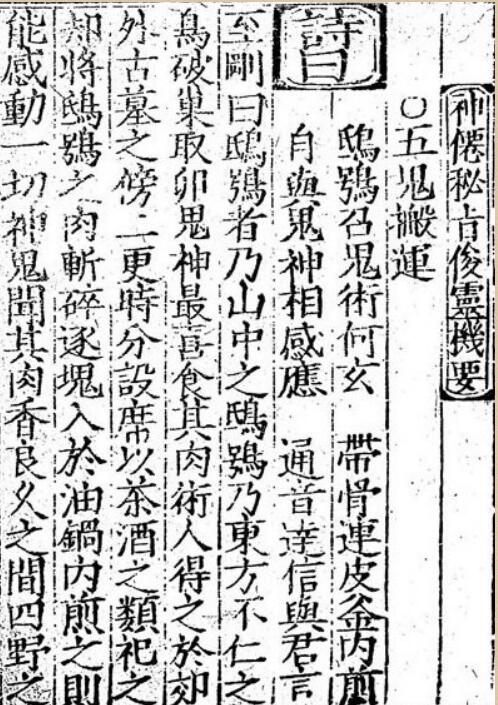 神僊秘占俊靈機要
○五鬼搬運
鴟鴞召鬼術何玄　帶骨連皮釜內煎
詩曰
自與鬼神相感應　通音達信與君言
至剛曰鴟鴞者乃山中之鴟鴞乃東方不仁之
鳥破巢取卵鬼神最喜食其肉術人得之於郊
外古墓之傍二更時分設席以茶酒之類祀之
却將鴟鴞之肉斬碎逐塊入於油鍋內煎之則
能感動一切神鬼聞其肉香良久之間四野之